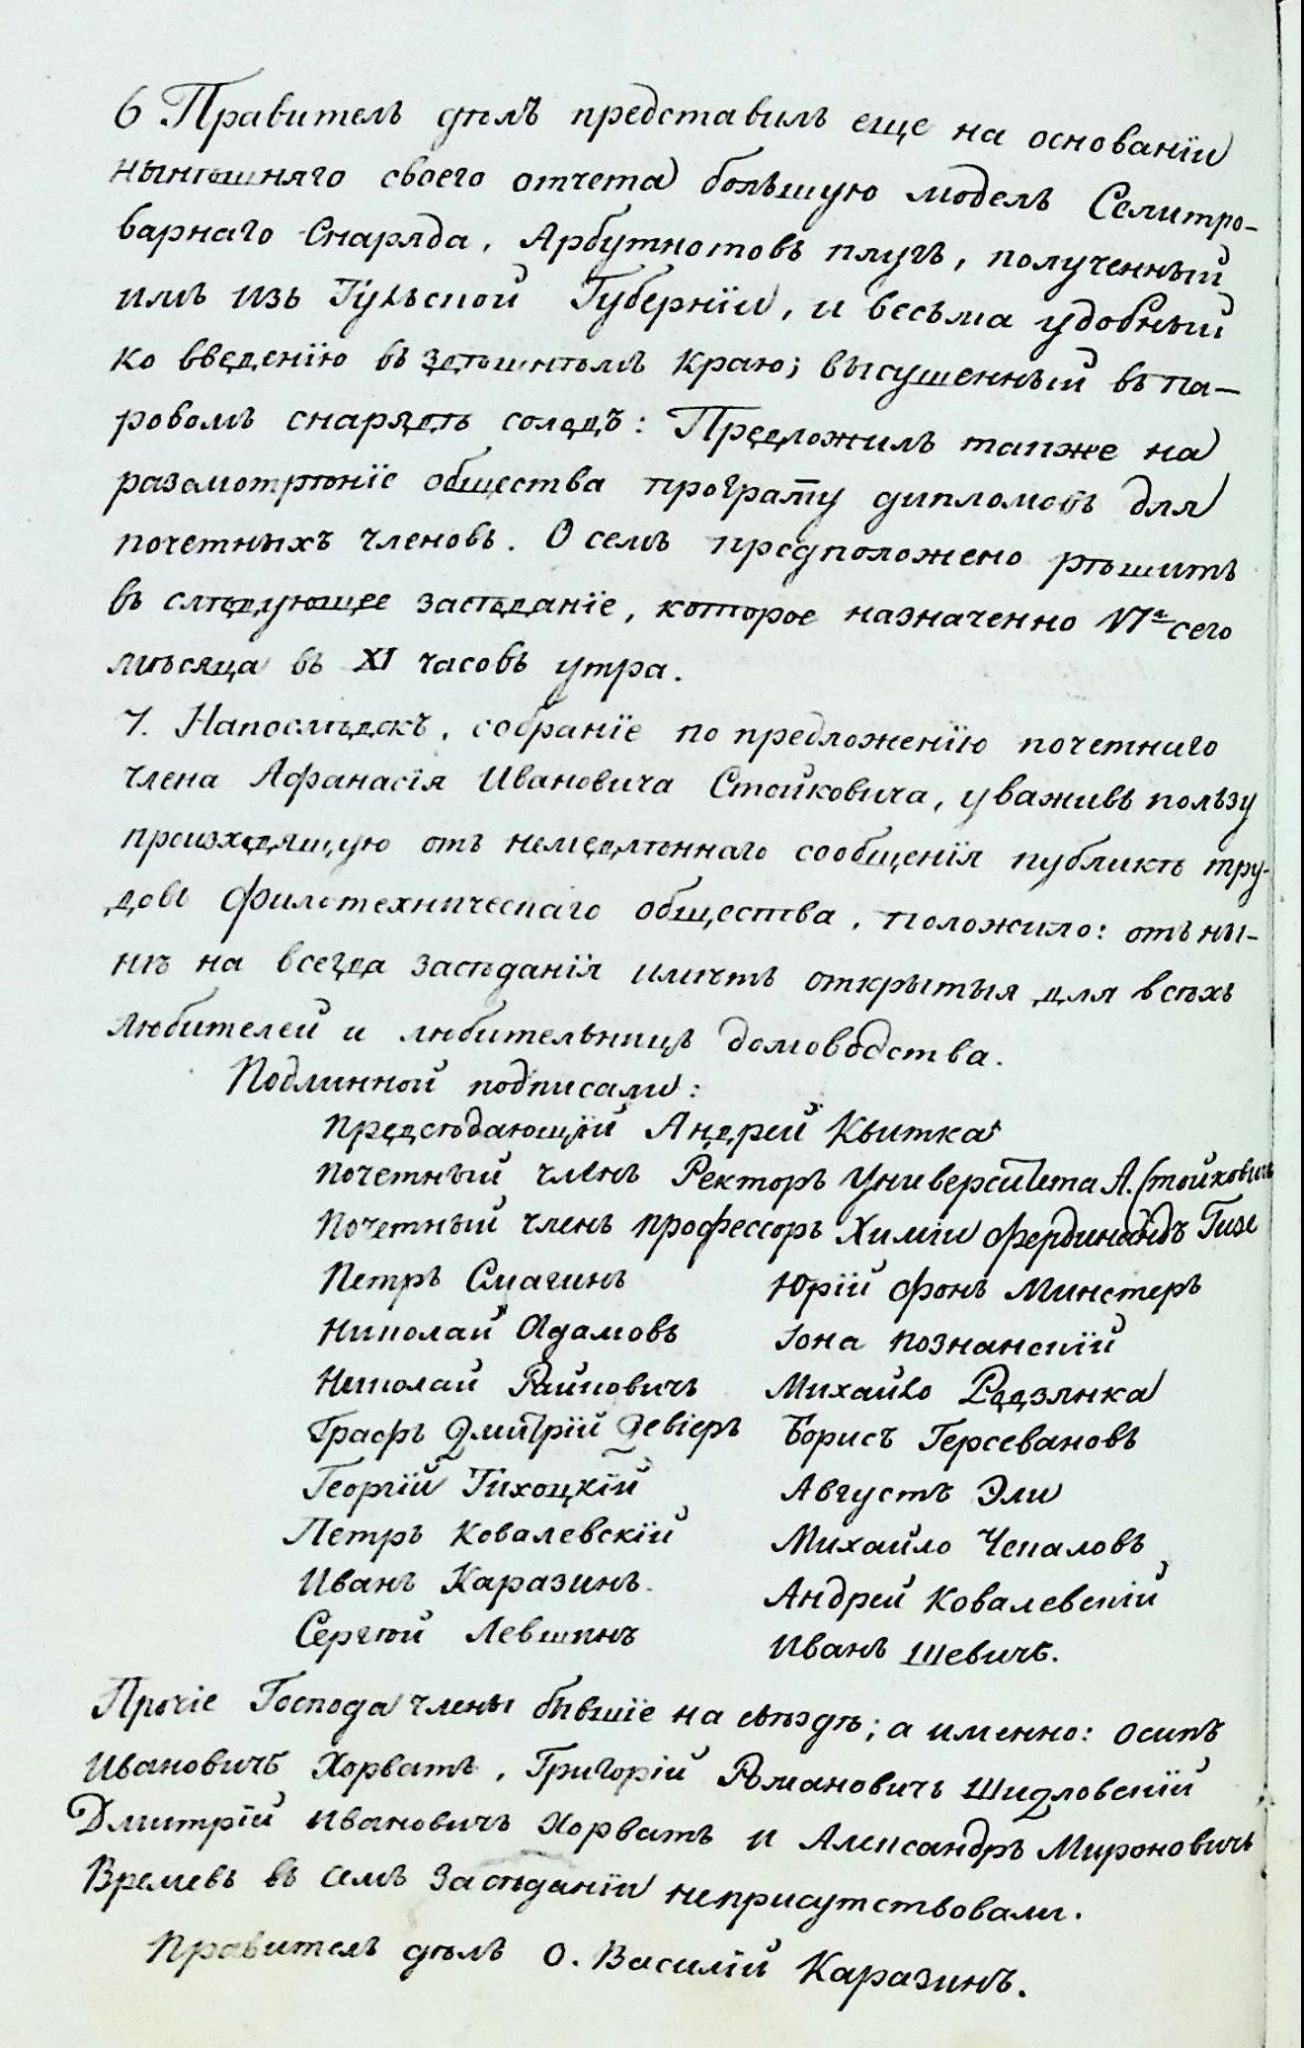 6 Правитель дѣлъ представилъ еще на основанїи
нынѣшняго своего отчета большую модель Селитро-
варнаго Снаряда, Арбутнотовъ плугъ, полученный
имъ изъ Тульской Губернїи, и весьма удобный
ко введенїю въ здѣшнѣмъ краю; высушенный въ па-
ровомъ снарядѣ солодъ: Предложилъ также на
разсмотрѣнїе общества програму дипломовъ для
почетныхъ членовъ. О семъ предположено рѣшить
въ слѣдующее засѣданїе, которое назначенно сего
мѣсяца въ XI часовъ утра.
7. Напослѣдокъ, собранїе по предложенїю почетнаго
члена Афанасїя Ивановича Стойковича, уваживъ пользу
произходящую отъ немедлѣннаго сообщенїя публикѣ тру-
довъ филотехническаго общества, положило: отъ ны-
нѣ на всегда засѣданїя имѣть открытыя для всѣхъ
любителей и любительницъ домоводства.
Подлинной подписали:
Предсѣдающїй Андрей Квитка
Почетный членъ Ректоръ Университета А. Стойковичъ
Почетный членъ профессоръ Химїи Фердинандъ Гизе
Петръ Смагинъ Юрїй фонъ Минстеръ
Николай Адамовъ Іона Познанскїй
Николай Райковичъ Михайло Родзянка
Графъ Дмитрїй Девіеръ Борисъ Герсевановъ
Георгїй Тихоцкїй Августъ Эли
Петръ Ковалевскїй Михайло Чепаловъ
Иванъ Каразинъ. Андрей Ковалевскїй
Сергѣй Левшинъ Иванъ Шевичъ.
Прочїе Господа члены бывшїе на съѣздѣ; а именно: Осипъ
Ивановичъ Хорватъ, Григорїй Романовичъ Шидловскїй
Дмитрїй Ивановичъ Хорватъ и Александръ Мироновичъ
Времевъ въ семъ Засѣданїи неприсутствовали.
Правитель дѣлъ О. Василїй Каразинъ.